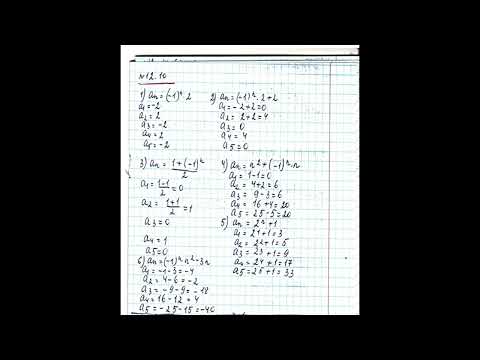 №12.10
1) aₙ = (-1)ⁿ · 2
a₁ = -2
a₂ = 2
a₃ = -2
a₄ = 2
a₅ = -2
2) aₙ = (-1)ⁿ · 2 + 2
a₁ = -2 + 2 = 0
a₂ = 2 + 2 = 4
a₃ = 0
a₄ = 4
a₅ = 0
3) aₙ = (1 + (-1)ⁿ)/2
a₁ = (1-1)/2 = 0
a₂ = (1+1)/2 = 1
a₃ = 0
a₄ = 1
a₅ = 0
4) aₙ = n² + (-1)ⁿ · n
a₁ = 1 - 1 = 0
a₂ = 4 + 2 = 6
a₃ = 9 - 3 = 6
a₄ = 16 + 4 = 20
a₅ = 25 - 5 = 20
5) aₙ = 2ⁿ + 1
a₁ = 2¹ + 1 = 3
a₂ = 2² + 1 = 5
a₃ = 2³ + 1 = 9
a₄ = 2⁴ + 1 = 17
a₅ = 2⁵ + 1 = 33
6) aₙ = (-1)ⁿ · n² - 3n
a₁ = -1 - 3 = -4
a₂ = 4 - 6 = -2
a₃ = -9 - 9 = -18
a₄ = 16 - 12 = 4
a₅ = -25 - 15 = -40